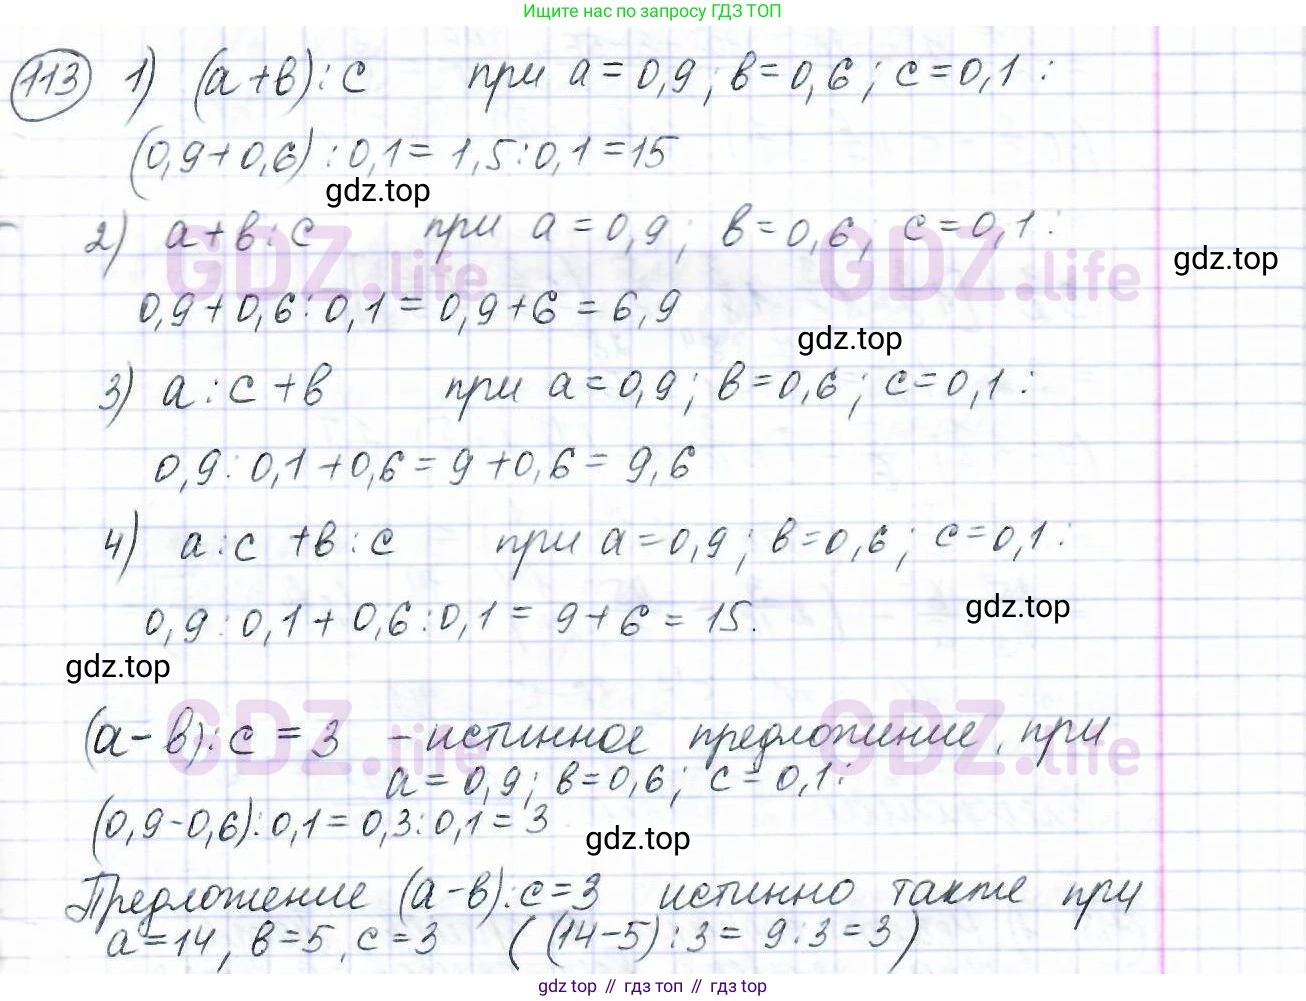 Ищите нас по запросу ГДЗ ТОП
113 1) (а+в):с при а=0,9; в=0,6; с=0,1:
(0,9+0,6):0,1=1,5:0,1=15
gdz.top
2) а+в:с при а=0,9; в=0,6; с=0,1:
GDZ.life GDZ.life
gdz.top
0,9+0,6:0,1=0,9+6=6,9
gdz.top
3) а:с+в при а=0,9; в=0,6; с=0,1:
0,9:0,1+0,6=9+0,6=9,6
4) а:с+в:с при а=0,9; в=0,6; с=0,1:
0,9:0,1+0,6:0,1=9+6=15.
gdz.top
gdz.top
(а-в):с=3 - истинное предложение, при
GDZ.life GDZ.life
а=0,9; в=0,6; с=0,1:
(0,9-0,6):0,1=0,3:0,1=3
gdz.top
Предложение (а-в):с=3 истинно также при
а=14, в=5, с=3 ((14-5):3=9:3=3)
gdz top // гдз топ // гдз top